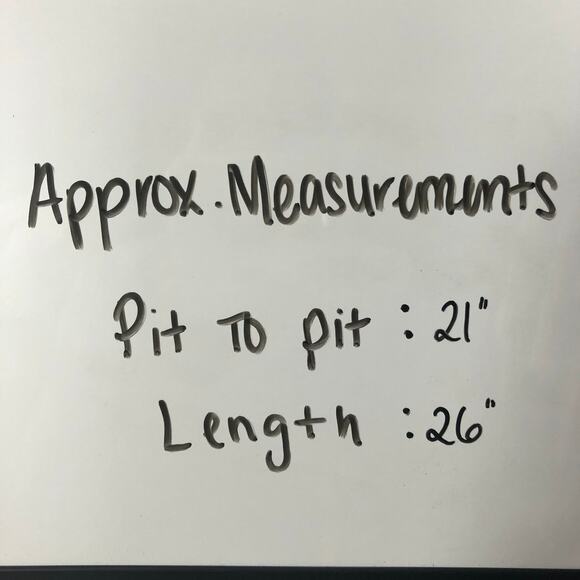 Approx. Measurements
Pit To pit : 21"
Length : 26"